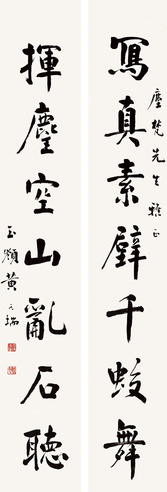 寫真素壁千蛟舞
塵梵先生雅正
揮麈空山亂石聽
玉顲黃元瑞